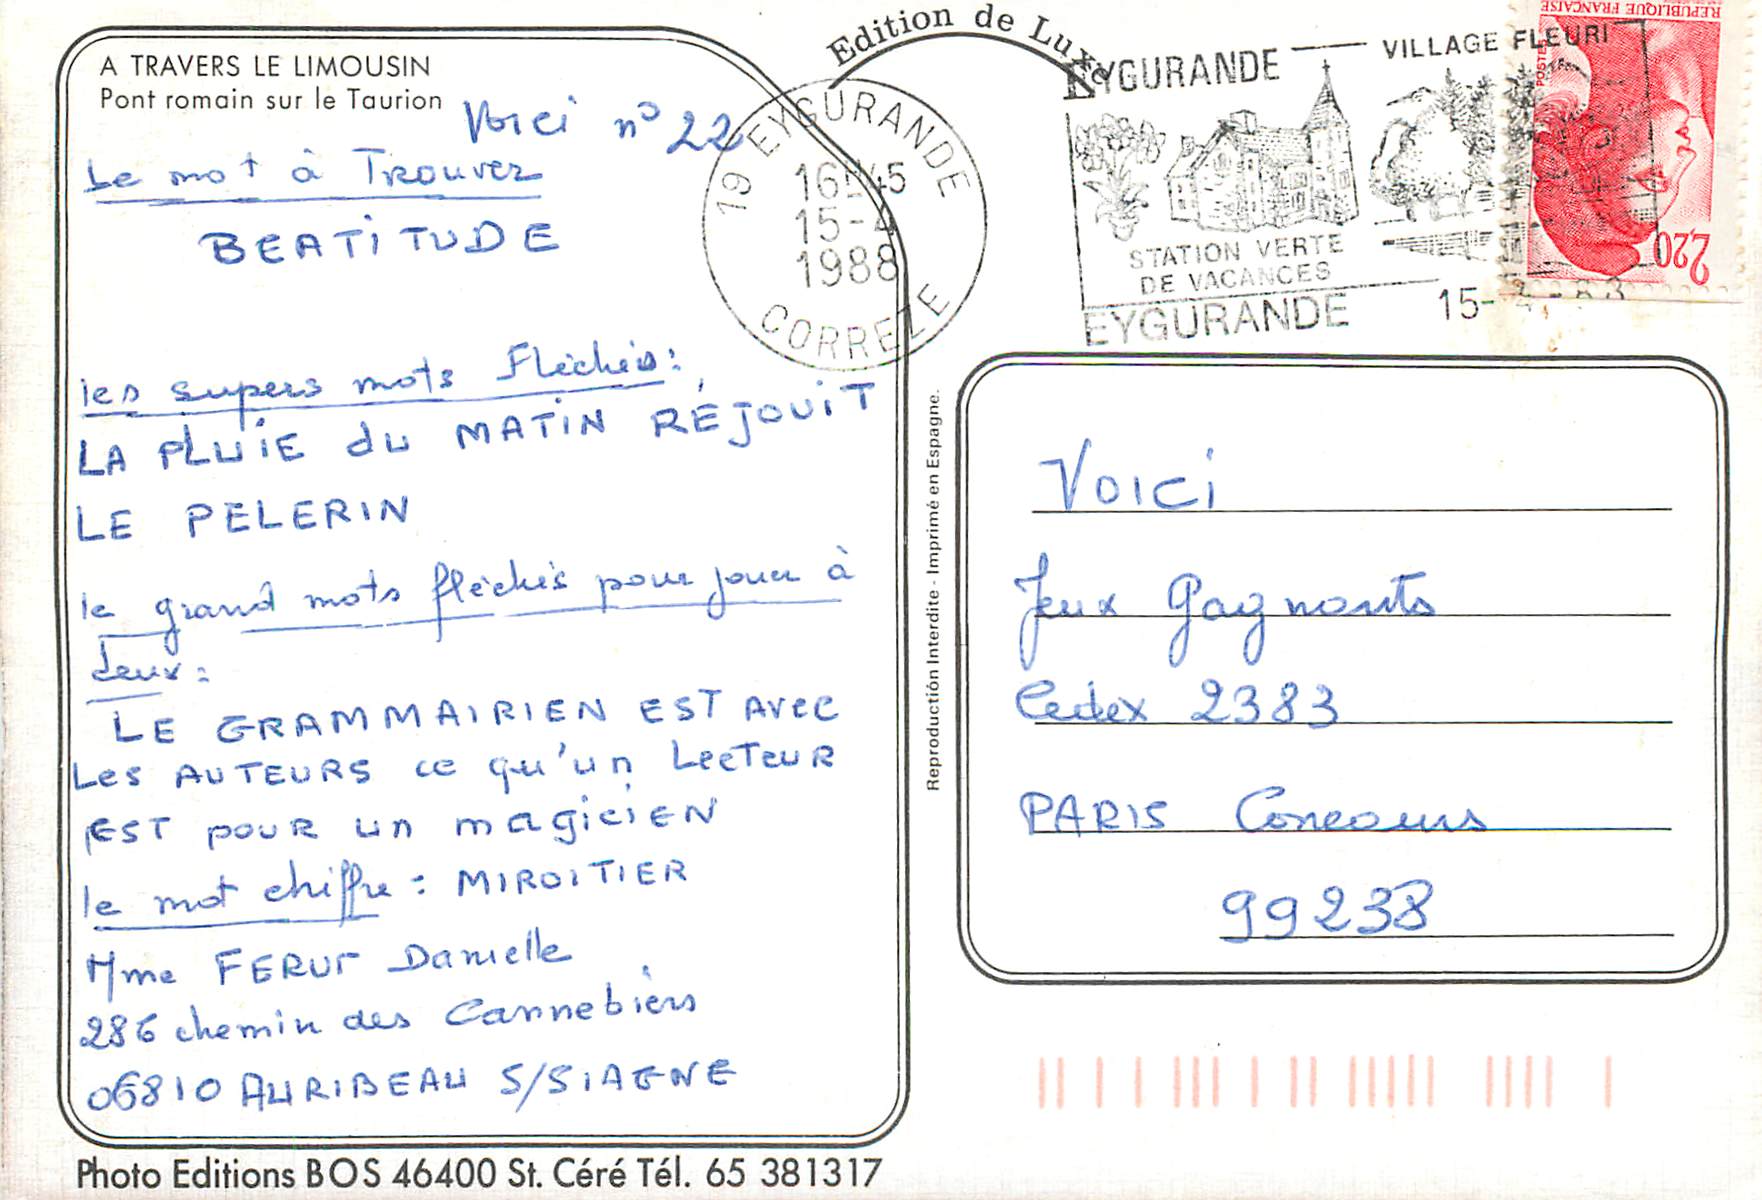 A TRAVERS LE LIMOUSIN
Pont romain sur le Taurion
Voici n° 22
Le mot à Trouver
BEATITUDE
les supers mots Fléchés :
LA PLUIE du MATIN RÉJOUIT
LE PELERIN
le grand mots fléchés pour jouer à
deux :
LE GRAMMAIRIEN EST AVEC
LES AUTEURS ce qu'un LECTEUR
EST pour un magicien
le mot chiffre : MIROITIER
Mme FERUT Danielle
286 chemin des Cannebiers
06810 AURIBEAU S/SIAGNE
Photo Editions BOS 46400 St. Céré Tél. 65 381317
Edition de Luxe
19 EYGURANDE
16H45
15-4
1988
CORREZE
EYGURANDE — VILLAGE FLEURI
STATION VERTE
DE VACANCES
EYGURANDE 15-
REPUBLIQUE FRANÇAISE
POSTES
2,20
Reproductión Interdite - Imprimé en Espagne.
Voici
Jeux Gagnants
Cedex 2383
PARIS Concours
99238